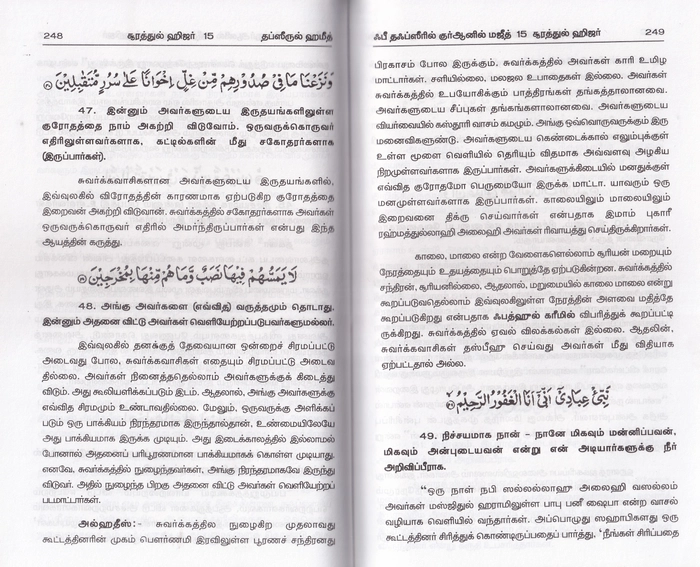 248 சூரத்துல் ஹிஜர் 15 தப்ஸீருல் ஹமீத்
وَنَزَعْنَا مَا فِي صُدُورِهِم مِّنْ غِلٍّ إِخْوَانًا عَلَىٰ سُرُرٍ مُّتَقَابِلِينَ
47. இன்னும் அவர்களுடைய இருதயங்களிலுள்ள
குரோதத்தை நாம் அகற்றி விடுவோம். ஒருவருக்கொருவர்
எதிரிலுள்ளவர்களாக, கட்டில்களின் மீது சகோதரர்களாக
(இருப்பார்கள்).
சுவர்க்கவாசிகளான அவர்களுடைய இருதயங்களில்,
இவ்வுலகில் விரோதத்தின் காரணமாக ஏற்படுகிற குரோதத்தை
இறைவன் அகற்றி விடுவான். சுவர்க்கத்தில் சகோதரர்களாக அவர்கள்
ஒருவருக்கொருவர் எதிரில் அமர்ந்திருப்பார்கள் என்பது இந்த
ஆயத்தின் கருத்து.
لَا يَمَسُّهُمْ فِيهَا نَصَبٌ وَّمَا هُم مِّنْهَا بِمُخْرَجِينَ
48. அங்கு அவர்களை (எவ்வித) வருத்தமும் தொடாது.
இன்னும் அதனை விட்டு அவர்கள் வெளியேற்றப்படுபவர்களுமல்லர்.
இவ்வுலகில் தனக்குத் தேவையான ஒன்றைச் சிரமப்பட்டு
அடைவது போல, சுவர்க்கவாசிகள் எதையும் சிரமப்பட்டு அடைவ
தில்லை. அவர்கள் நினைத்ததெல்லாம் அவர்களுக்குக் கிடைத்து
விடும். அது கூலியளிக்கப்படும் இடம். ஆதலால், அங்கு அவர்களுக்கு
எவ்வித சிரமமும் உண்டாவதில்லை. மேலும், ஒருவருக்கு அளிக்கப்
படும் ஒரு பாக்கியம் நிரந்தரமாக இருந்தால்தான், உண்மையிலேயே
அது பாக்கியமாக இருக்க முடியும். அது இடைக்காலத்தில் இல்லாமல்
போனால் அதனைப் பரிபூரணமான பாக்கியமாகக் கொள்ள முடியாது.
எனவே, சுவர்க்கத்தில் நுழைந்தவர்கள், அங்கு நிரந்தரமாகவே இருந்து
விடுவர். அதில் நுழைந்த பிறகு அதனை விட்டு அவர்கள் வெளியேற்றப்
படமாட்டார்கள்.
அல்ஹதீஸ்:- சுவர்க்கத்தில நுழைகிற முதலாவது
கூட்டத்தினரின் முகம் பௌர்ணமி இரவிலுள்ள பூரணச் சந்திரனது
ஃபீ தஃப்ஸீரில் குர்ஆனில் மஜீத் 15 சூரத்துல் ஹிஜர் 249
பிரகாசம் போல இருக்கும். சுவர்க்கத்தில் அவர்கள் காரி உமிழ
மாட்டார்கள். சளியில்லை, மலஜல உபாதைகள் இல்லை. அவர்கள்
சுவர்க்கத்தில் உபயோகிக்கும் பாத்திரங்கள் தங்கத்தாலானவை.
அவர்களுடைய சீப்புகள் தங்கங்களாலானவை. அவர்களுடைய
வியர்வையில் கஸ்தூரி வாசம் கமழும். அங்கு ஒவ்வொருவருக்கும் இரு
மனைவிகளுண்டு. அவர்களுடைய கெண்டைக்கால் எலும்புக்குள்
உள்ள மூளை வெளியில் தெரியும் விதமாக அவ்வளவு அழகிய
நிறமுள்ளவர்களாக இருப்பார்கள். அவர்களுக்கிடையில் மனதுக்குள்
எவ்வித குரோதமோ பெருமையோ இருக்க மாட்டா. யாவரும் ஒரு
மனமுள்ளவர்களாக இருப்பார்கள். காலையிலும் மாலையிலும்
இறைவனை திக்ரு செய்வார்கள் என்பதாக இமாம் புகாரீ
ரஹ்மத்துல்லாஹி அலைஹி அவர்கள் ரிவாயத்து செய்திருக்கிறார்கள்.
காலை, மாலை என்ற வேளைகளெல்லாம் சூரியன் மறையும்
நேரத்தையும் உதயத்தையும் பொறுத்தே ஏற்படுகின்றன. சுவர்க்கத்தில்
சந்திரன், சூரியனில்லை, ஆதலால், மறுமையில் காலை மாலை என்று
கூறப்படுவதெல்லாம் இவ்வுலகிலுள்ள நேரத்தின் அளவை மதித்தே
கூறப்படுகிறது என்பதாக ஃபத்ஹுல் கரீமில் விபரித்துக் கூறப்பட்டி
ருக்கிறது. சுவர்க்கத்தில் ஏவல் விலக்கல்கள் இல்லை. ஆதலின்,
சுவர்க்கவாசிகள் தஸ்பீஹு செய்வது அவர்கள் மீது விதியாக
ஏற்பட்டதால் அல்ல.
نَبِّئْ عِبَادِي أَنِّي أَنَا الْغَفُورُ الرَّحِيمُ
49. நிச்சயமாக நான் - நானே மிகவும் மன்னிப்பவன்,
மிகவும் அன்புடையவன் என்று என் அடியார்களுக்கு நீர்
அறிவிப்பீராக.
“ஒரு நாள் நபி ஸல்லல்லாஹு அலைஹி வஸல்லம்
அவர்கள் மஸ்ஜிதுல் ஹராமிலுள்ள பாபு பனீ ஷைபா என்ற வாசல்
வழியாக வெளியில் வந்தார்கள். அப்பொழுது ஸஹாபிகளது ஒரு
கூட்டத்தினர் சிரித்துக் கொண்டிருப்பதைப் பார்த்து, ‘நீங்கள் சிரிப்பதை